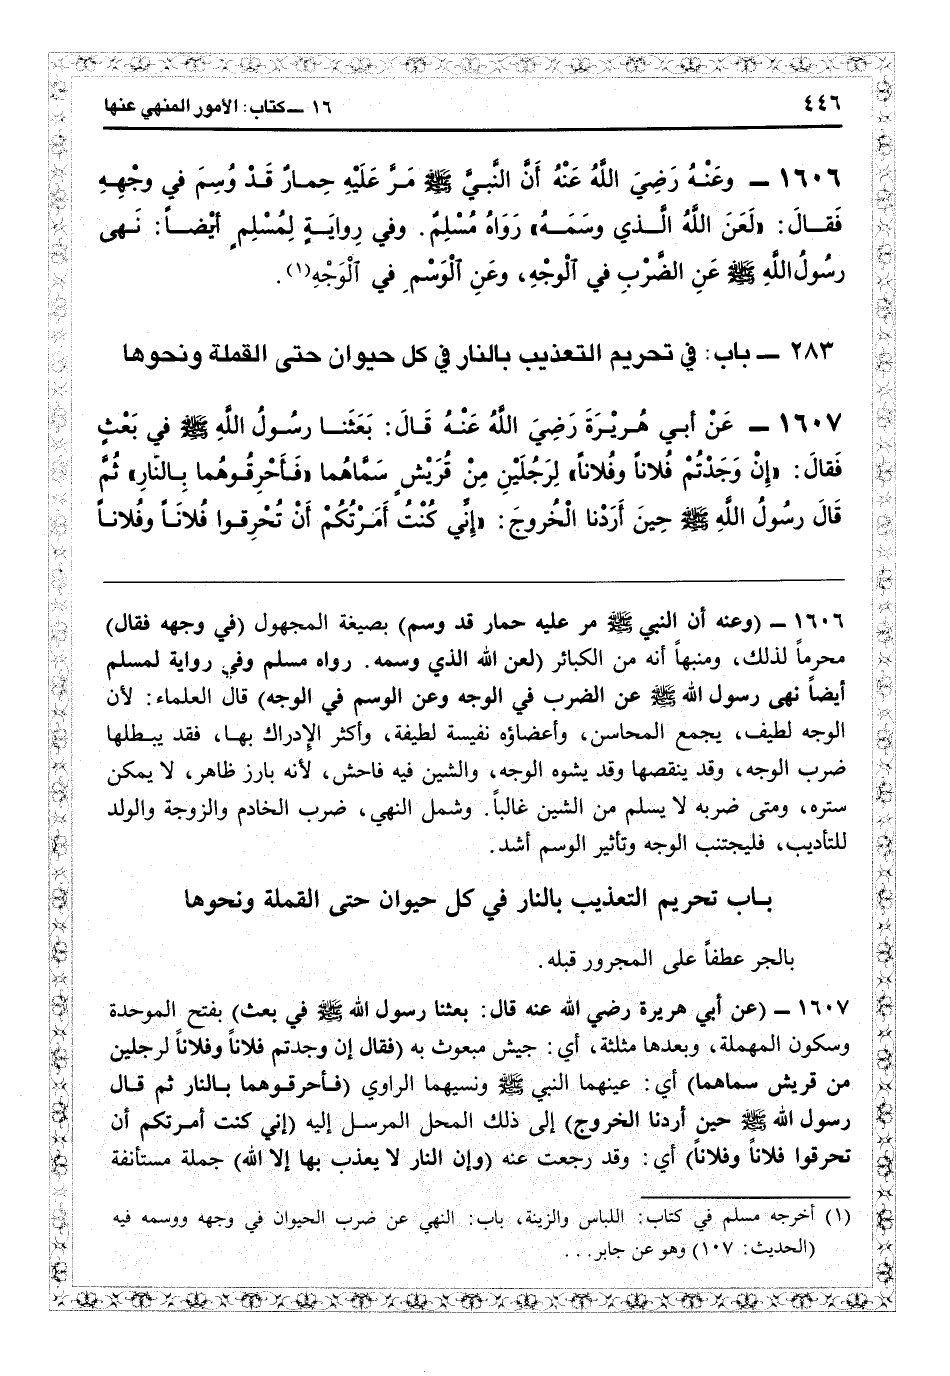 ٤٤٦
١٦ ــ كتاب: الأمور المنهي عنها
١٦٠٦ ــ وعَنْهُ رَضِيَ اللَّهُ عَنْهُ أَنَّ النَّبيَّ ﷺ مَرَّ عَلَيْهِ حِمارٌ قَدْ وُسِمَ في وجْهِهِ
فَقالَ: «لَعَنَ اللَّهُ الَّذي وسَمَهُ» رَوَاهُ مُسْلِمٌ. وفي رِوايَةٍ لِمُسْلِمٍ أيْضاً: نَهى
رسُولُ اللَّهِ ﷺ عَنِ الضَّرْبِ في ٱلْوجْهِ، وعَنِ ٱلْوَسْمِ في ٱلْوَجْهِ(١).
٢٨٣ ــ باب: في تحريم التعذيب بالنار في كل حيوان حتى القملة ونحوها
١٦٠٧ ــ عَنْ أبي هُرِيْرَةَ رَضِيَ اللَّهُ عَنْهُ قَالَ: بَعَثَنا رسُولُ اللَّهِ ﷺ في بَعْثٍ
فَقالَ: «إنْ وَجَدْتُمْ فُلاناً وفُلاناً» لِرَجُلَينِ مِنْ قُرَيْشٍ سَمَّاهُما «فَأَحْرِقُوهُما بِالنَّارِ» ثُمَّ
قَالَ رسُولُ اللَّهِ ﷺ حِينَ أَرَدْنا الْخُروجَ: «إنِّي كُنْتُ أَمَرْتُكُمْ أَنْ تُحْرِقوا فُلانَاً وفُلاناً
١٦٠٦ ــ (وعنه أن النبي ﷺ مر عليه حمار قد وسم) بصيغة المجهول (في وجهه فقال)
محرماً لذلك، ومنبهاً أنه من الكبائر (لعن الله الذي وسمه. رواه مسلم وفي رواية لمسلم
أيضاً نهى رسول الله ﷺ عن الضرب في الوجه وعن الوسم في الوجه) قال العلماء: لأن
الوجه لطيف، يجمع المحاسن، وأعضاؤه نفيسة لطيفة، وأكثر الإدراك بها، فقد يبطلها
ضرب الوجه، وقد ينقصها وقد يشوه الوجه، والشين فيه فاحش، لأنه بارز ظاهر، لا يمكن
ستره، ومتى ضربه لا يسلم من الشين غالباً. وشمل النهي، ضرب الخادم والزوجة والولد
للتأديب، فليجتنب الوجه وتأثير الوسم أشد.
باب تحريم التعذيب بالنار في كل حيوان حتى القملة ونحوها
بالجر عطفاً على المجرور قبله.
١٦٠٧ ــ (عن أبي هريرة رضي الله عنه قال: بعثنا رسول الله ﷺ في بعث) بفتح الموحدة
وسكون المهملة، وبعدها مثلثة، أي: جيش مبعوث به (فقال إن وجدتم فلاناً وفلاناً لرجلين
من قريش سماهما) أي: عينهما النبي ﷺ ونسيهما الراوي (فأحرقوهما بالنار ثم قال
رسول الله ﷺ حين أردنا الخروج) إلى ذلك المحل المرسل إليه (إني كنت أمرتكم أن
تحرقوا فلاناً وفلاناً) أي: وقد رجعت عنه (وإن النار لا يعذب بها إلا الله) جملة مستأنفة
(١) أخرجه مسلم في كتاب: اللباس والزينة، باب: النهي عن ضرب الحيوان في وجهه ووسمه فيه
(الحديث: ١٠٧) وهو عن جابر...